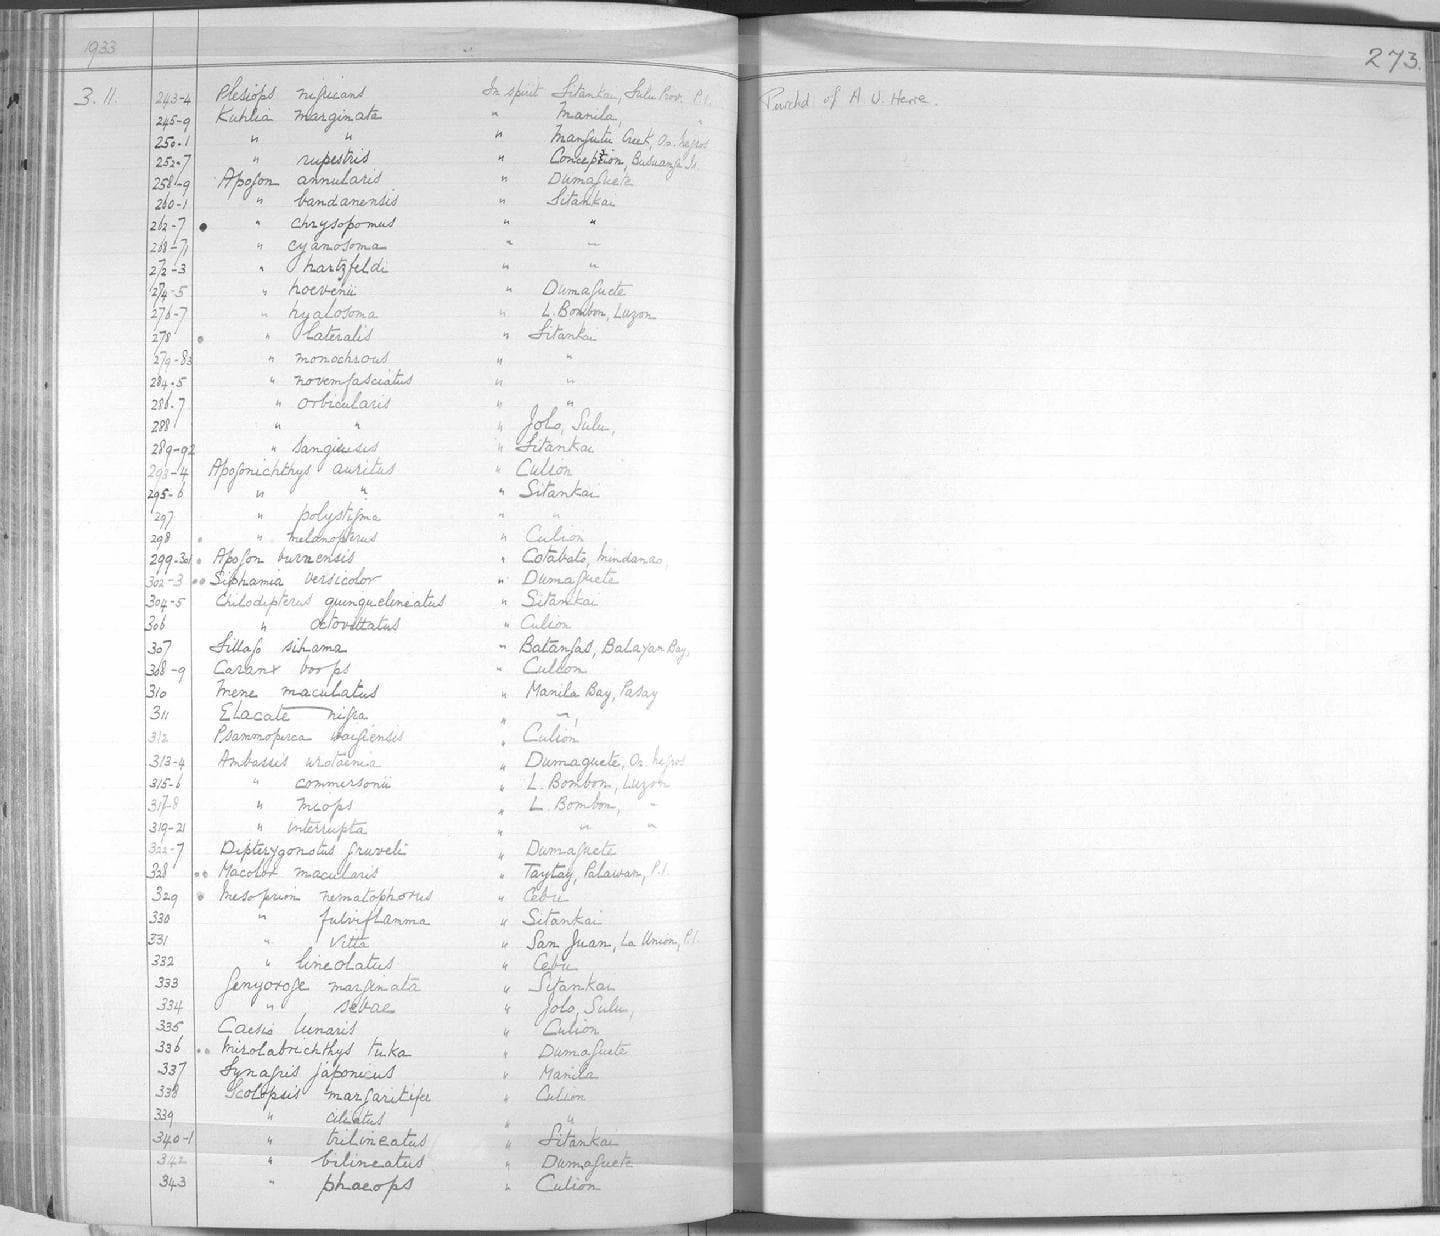 1933
273.
3. 11. 243-4 Plesiops nigricans In spirit Sitankai, Sulu Prov. P.I. Purchd of A. W. Herre.
245-9 Kuhlia marginata " Manila, "
250-1 " " " Creek, Or. Negros
252-7 " rupestris " Concepcion, Busuanga Is.
258-9 Apogon annularis " Dumaguete
260-1 " bandanensis " Sitankai
262-7 " chrysopomus " "
268-71 " cyanosoma " "
272-3 " hartzfeldi " "
274-5 " hoevenii " Dumaguete
276-7 " hyalosoma " L. Bombon, Luzon
278 " lateralis " Sitankai
279-83 " monochrous " "
284-5 " novemfasciatus " "
286-7 " orbicularis " "
288 " " " Jolo, Sulu,
289-92 " sangiensis " Sitankai
293-4 Apogonichthys auritus " Culion
295-6 " " " Sitankai
297 " polystigma " "
298 " melanopterus " Culion
299-301 Apogon " Cotabato, Mindanao,
302-3 Siphamia versicolor " Dumaguete
304-5 Chilodipterus quinquelineatus " Sitankai
306 " octovittatus " Culion
307 Sillago sihama " Batangas, Balayan Bay,
308-9 Caranx boops " Culion
310 Mene maculatus " Manila Bay, Pasay
311 Elacate nigra " "
312 Psammoperca waigiensis " Culion
313-4 Ambassis urotaenia " Dumaguete, Or. Negros
315-6 " commersonii " L. Bombon, Luzon
317-8 " miops " L. Bombon, "
319-21 " interrupta " " "
322-7 Dipterygonotus gruveli " Dumaguete
328 Macolor macularis " Taytay, Palawan, P.I.
329 Mesoprion nematophorus " Cebu
330 " fulviflamma " Sitankai
331 " vitta " San Juan, La Union, P.I.
332 " lineolatus " Cebu
333 Genyoroge marginata " Sitankai
334 " sebae " Jolo, Sulu,
335 Caesio lunaris " Culion
336 Mirolabrichthys tuka " Dumaguete
337 Synagris japonicus " Manila
338 Scolopsis margaritifer " Culion
339 " ciliatus " "
340-1 " trilineatus " Sitankai
342 " bilineatus " Dumaguete
343 " phaeops " Culion